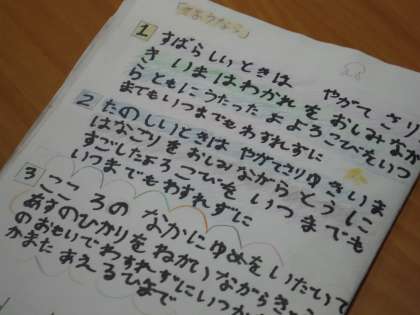 「さようなら」
1 すばらしいときは やがて さり
き いまは わかれを おしみなが
ら ともに うたった よろこびをいつ
までも いつまでも わすれずに
2 たのしいときは やがてさりゆき いま
はなごりを おしみながら ともに
すごしたよろこびを いつまでも
いつまでも わすれずに
3 こころの なかに ゆめを いだいて
あすの ひかりを ねがいながら きょ
の おもいで わすれずに いつ
かまた あえるひまで